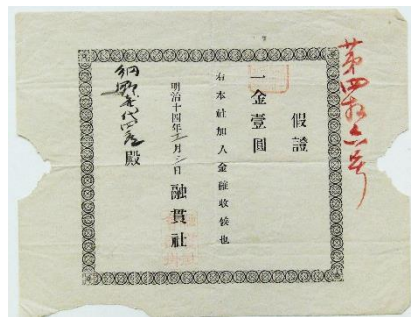 第四拾六号
假證
一金壹圓
右本社加入金確收候也
明治十四年 月 日
融貫社
殿